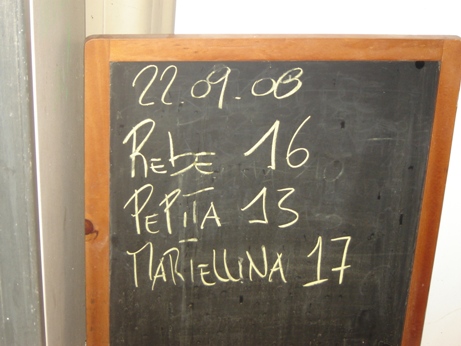 22.09.08
REBE 16
PEPITA 13
MARTELLINA 17